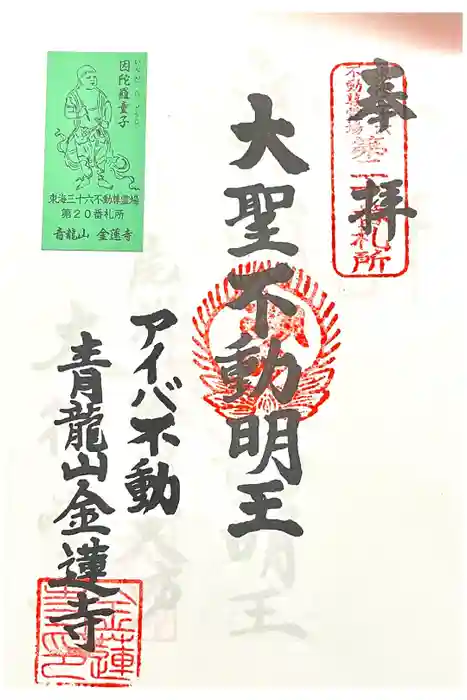 奉拝
不動尊霊場
札所
大聖不動明王
アイバ不動
青龍山金蓮寺
因陀羅童子
東海三十六不動尊霊場
第20番札所
青龍山 金蓮寺
金蓮
寺印